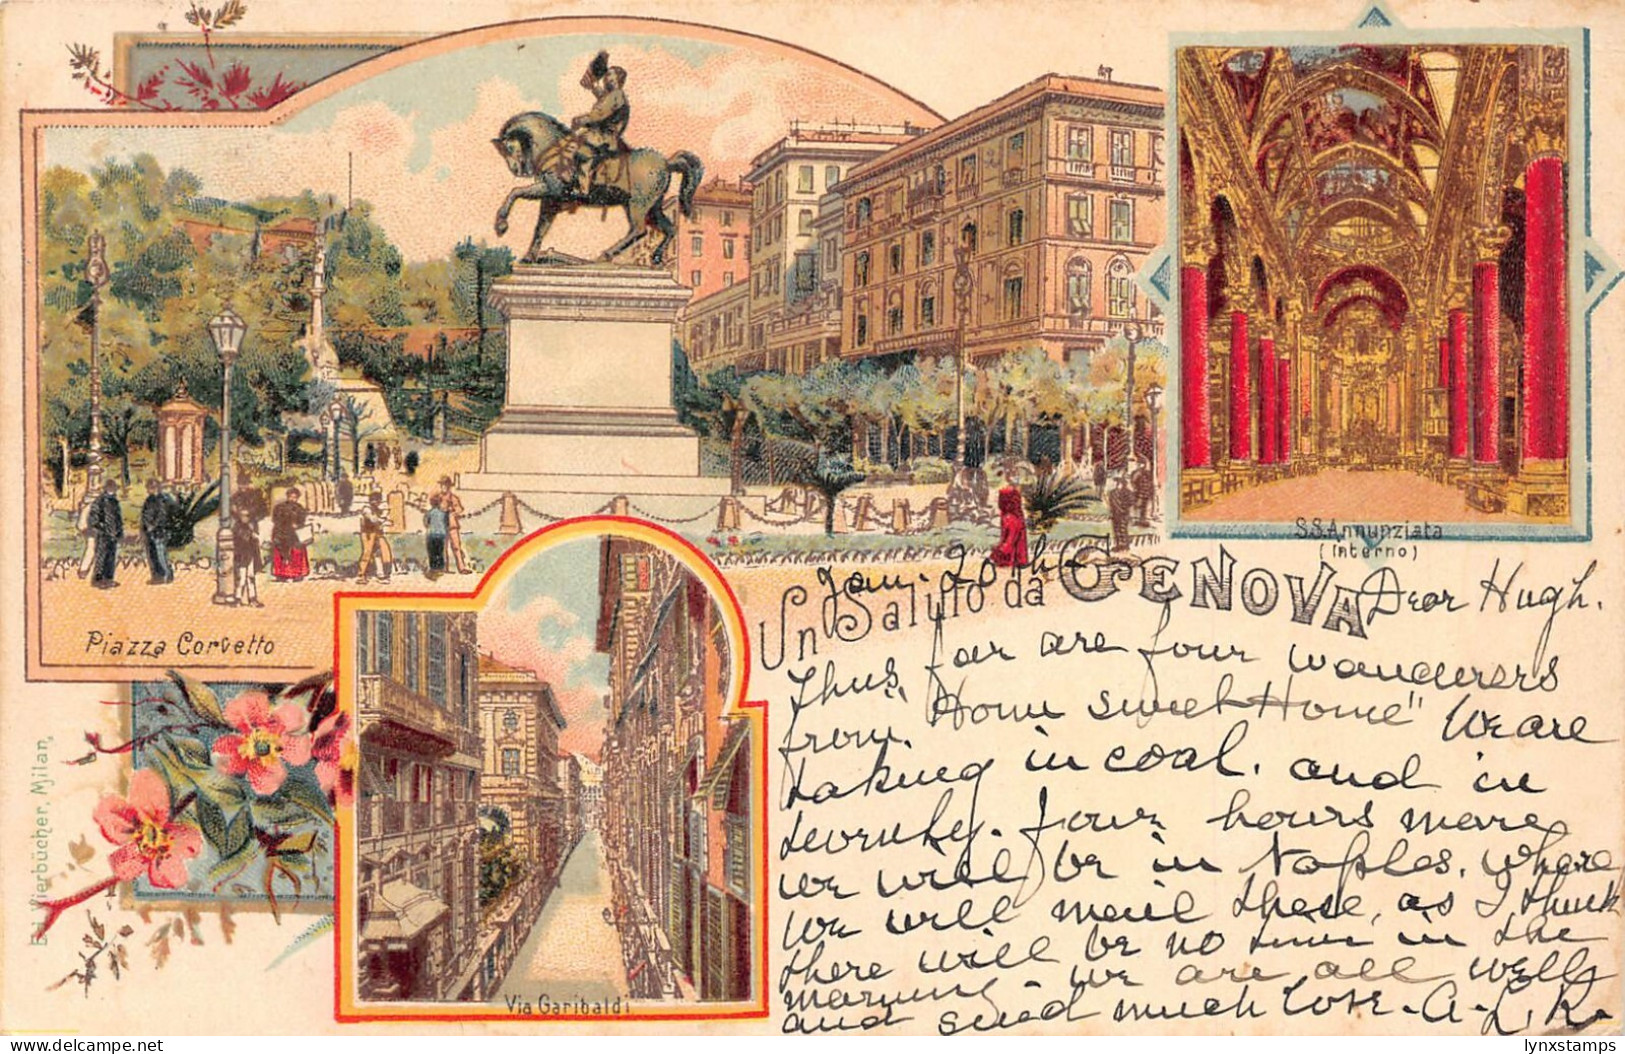 S.S. Annunziata
(Interno)
Un Saluto da GENOVA
Piazza Corvetto
Via Garibaldi
Ed. Vierbücher, Milan.
Jan. 20th
Dear Hugh.
Thus, far are four wanderers
from, "Home Sweet Home" We are
taking in coal, and in
twenty-four hours more
we will be in Naples, where
we will mail these, as I think
there will be no time in the
morning - we are all well
and send much love - A. L. R.
lynxstamps
delcampe.net